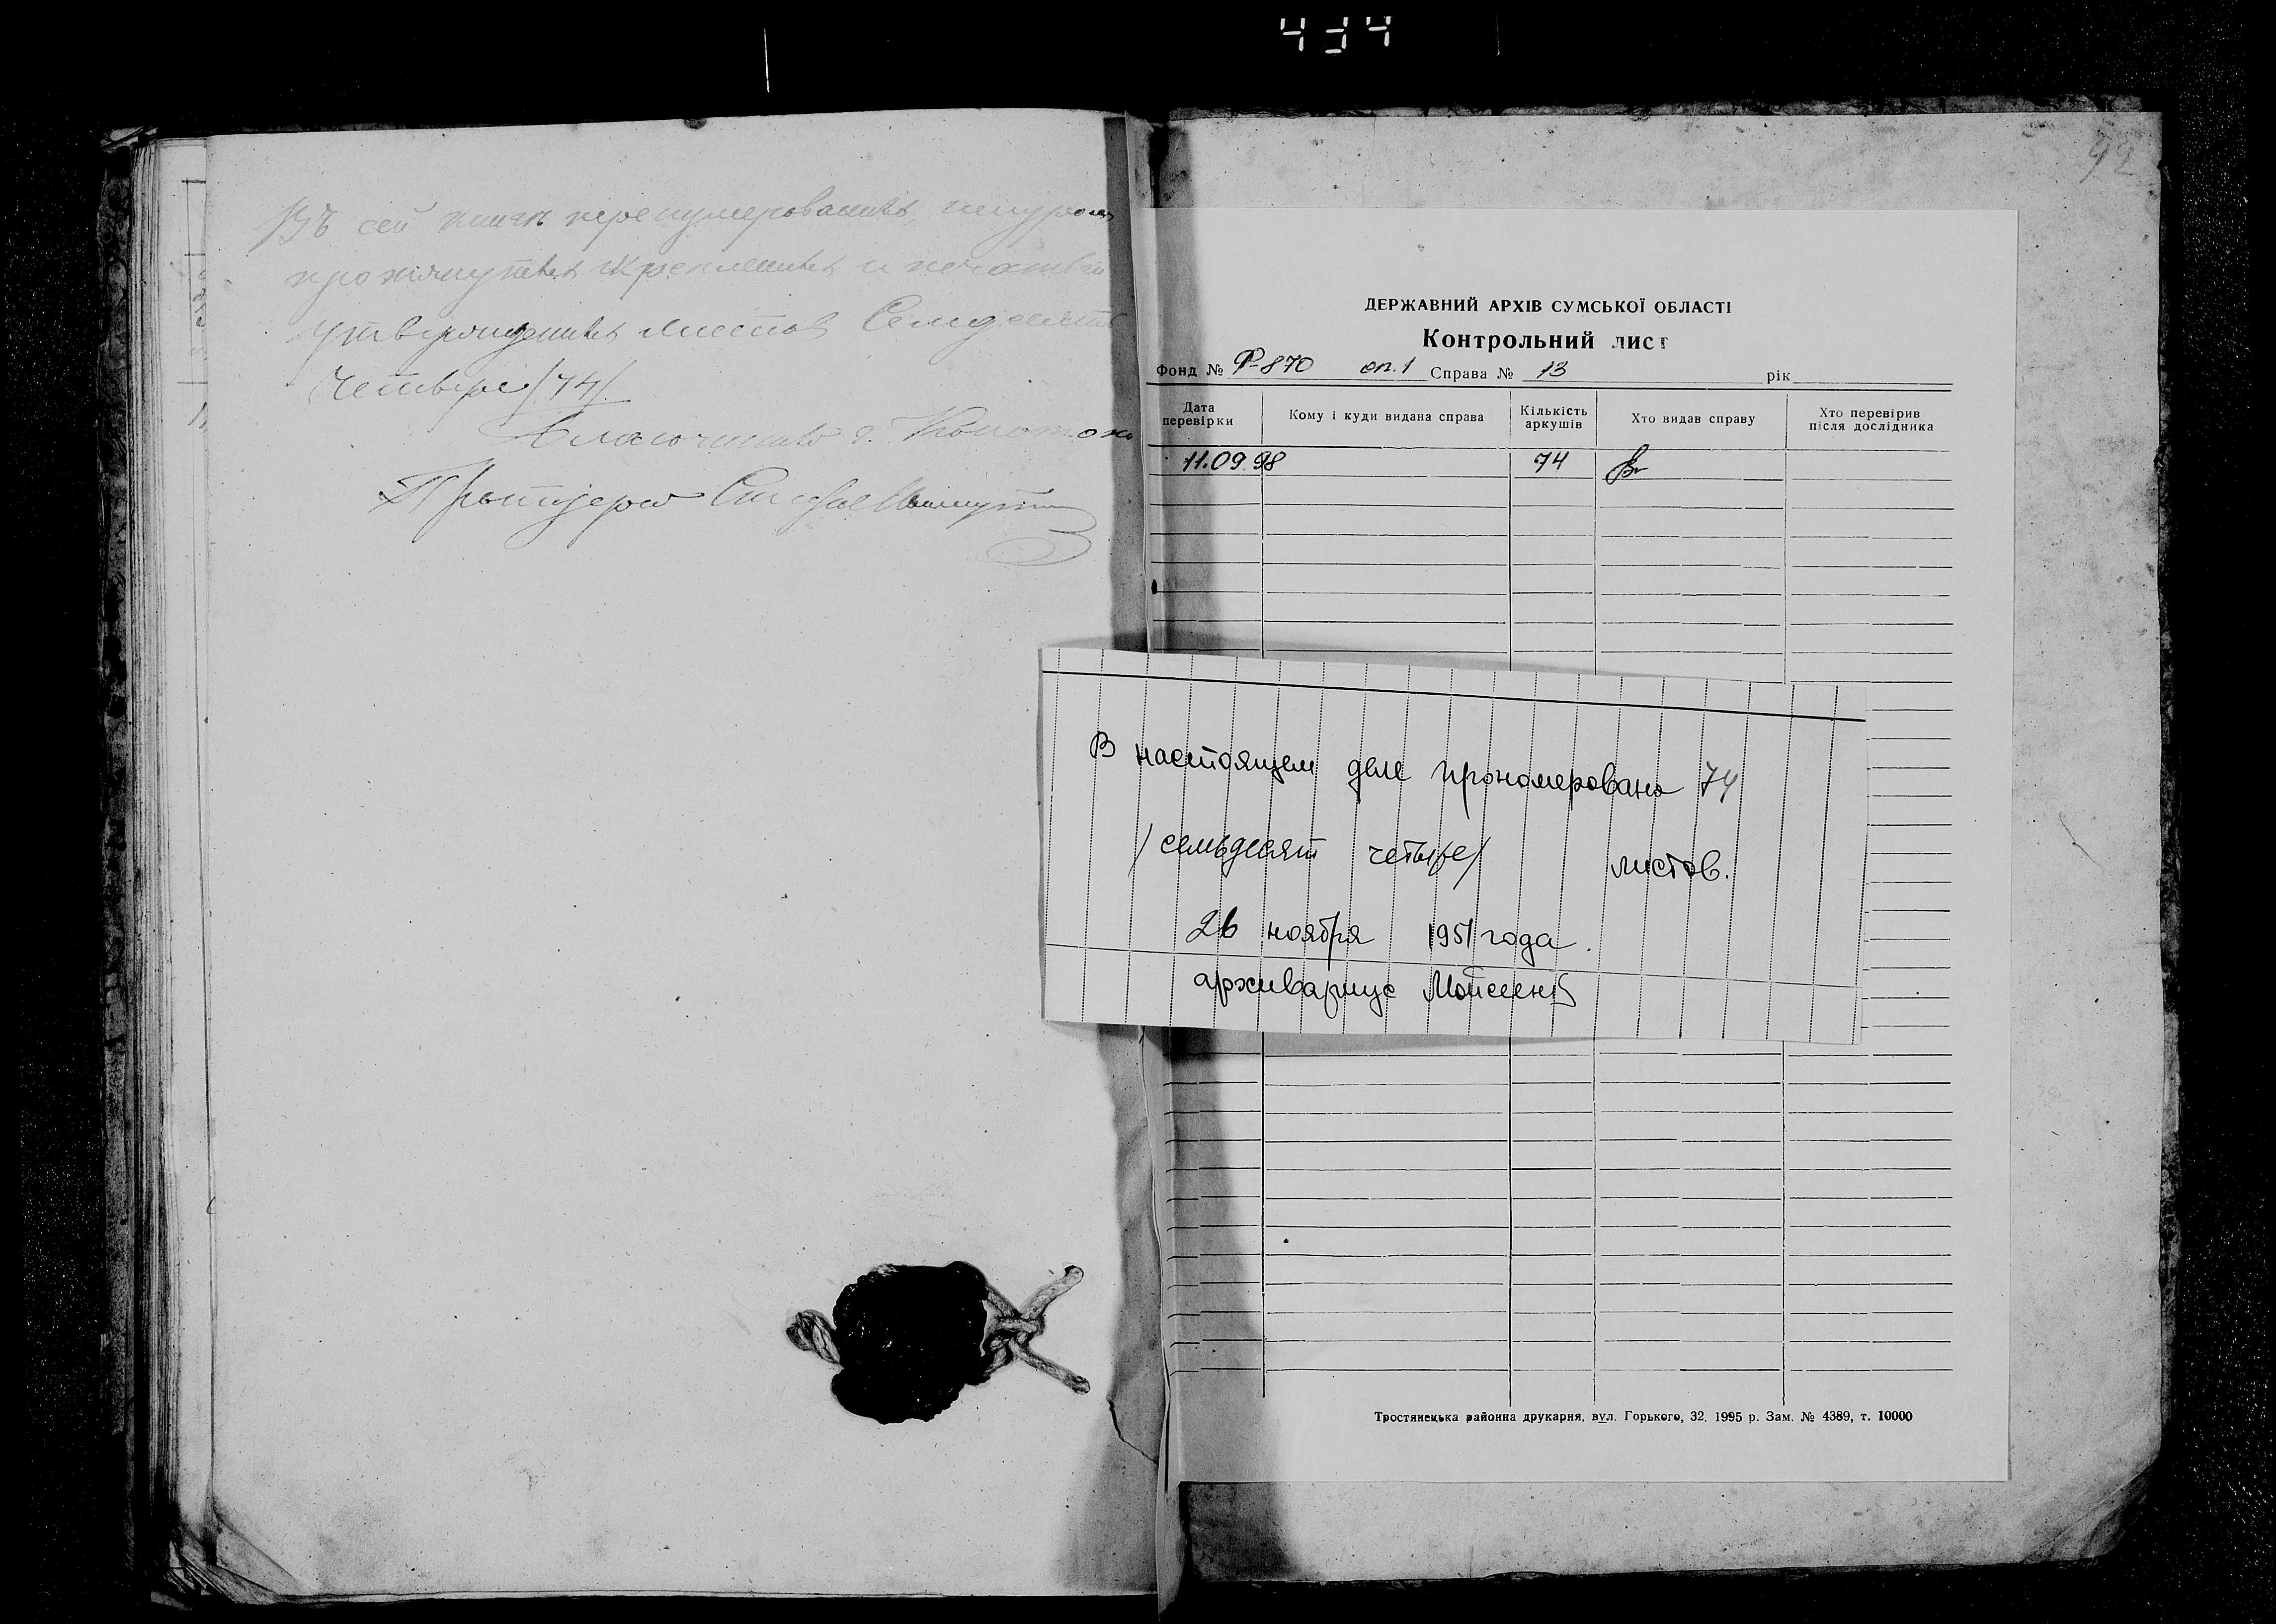 434
92
Въ сей книгѣ перенумерованныхъ, шнуромъ
протянутыхъ скрепленныхъ и печатью
утвержденныхъ листовъ Семдесятъ
Четыре /74/.
Благочинный г. Конотопа
Протоіерей
ДЕРЖАВНИЙ АРХІВ СУМСЬКОЇ ОБЛАСТІ
Контрольний лист
Фонд № Р-870 оп. 1 Справа № 13 рік
Дата перевірки Кому і куди видана справа Кількість аркушів Хто видав справу Хто перевірив після дослідника
11.09.98 74
В настоящем деле прономеровано 74
/семьдесят четыре/ листов.
26 ноября 1951 года.
архивариус Мойсеен
Тростянецька районна друкарня, вул. Горького, 32, 1995 р. Зам. № 4389, т. 10000